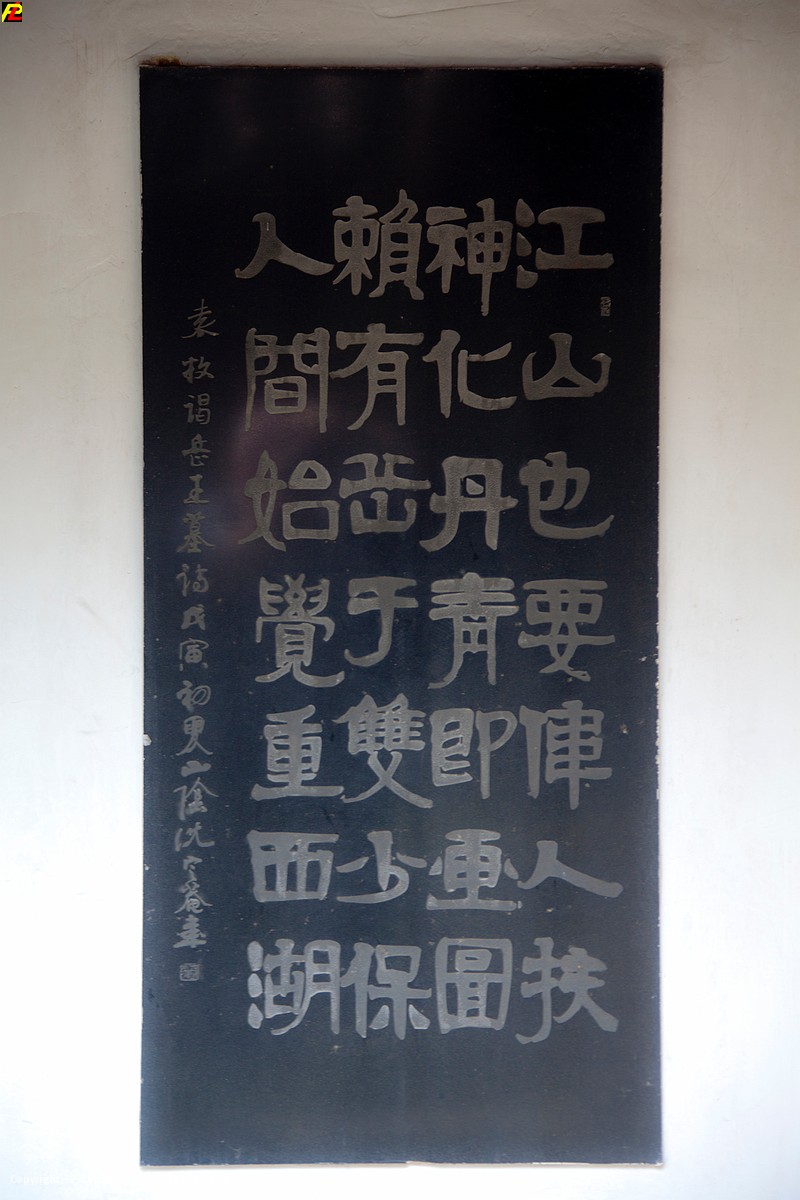 江山也要偉人扶
神化丹青即画圖
賴有岳于雙少保
人間始覺重西湖
袁枚謁岳王墓詩戊寅初夏山陰沈定庵書